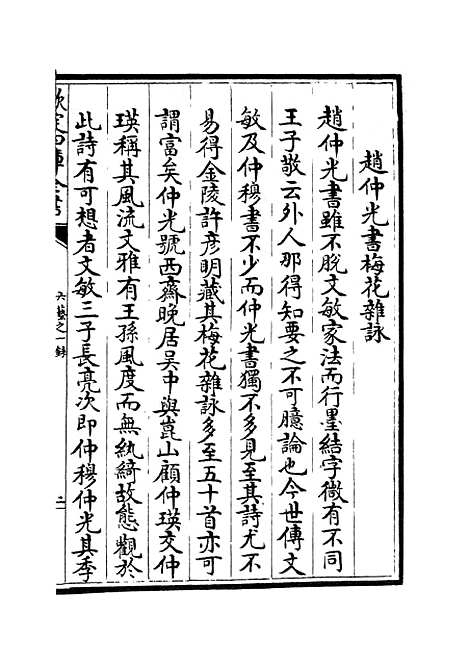 趙仲光書梅花雜詠
趙仲光書雖不脫文敏家法而行墨結字微有不同
王子敬云外人那得知要之不可臆論也今世傳文
敏及仲穆書不少而仲光書獨不多見至其詩尤不
易得金陵許彥明藏其梅花雜詠多至五十首亦可
謂富矣仲光號西齋晚居吴中與崑山顧仲瑛交仲
瑛稱其風流文雅有王孫風度而無紈綺故態觀於
此詩有可想者文敏三子長亮次即仲穆仲光其季
欽定四庫全書
六藝之一錄
二